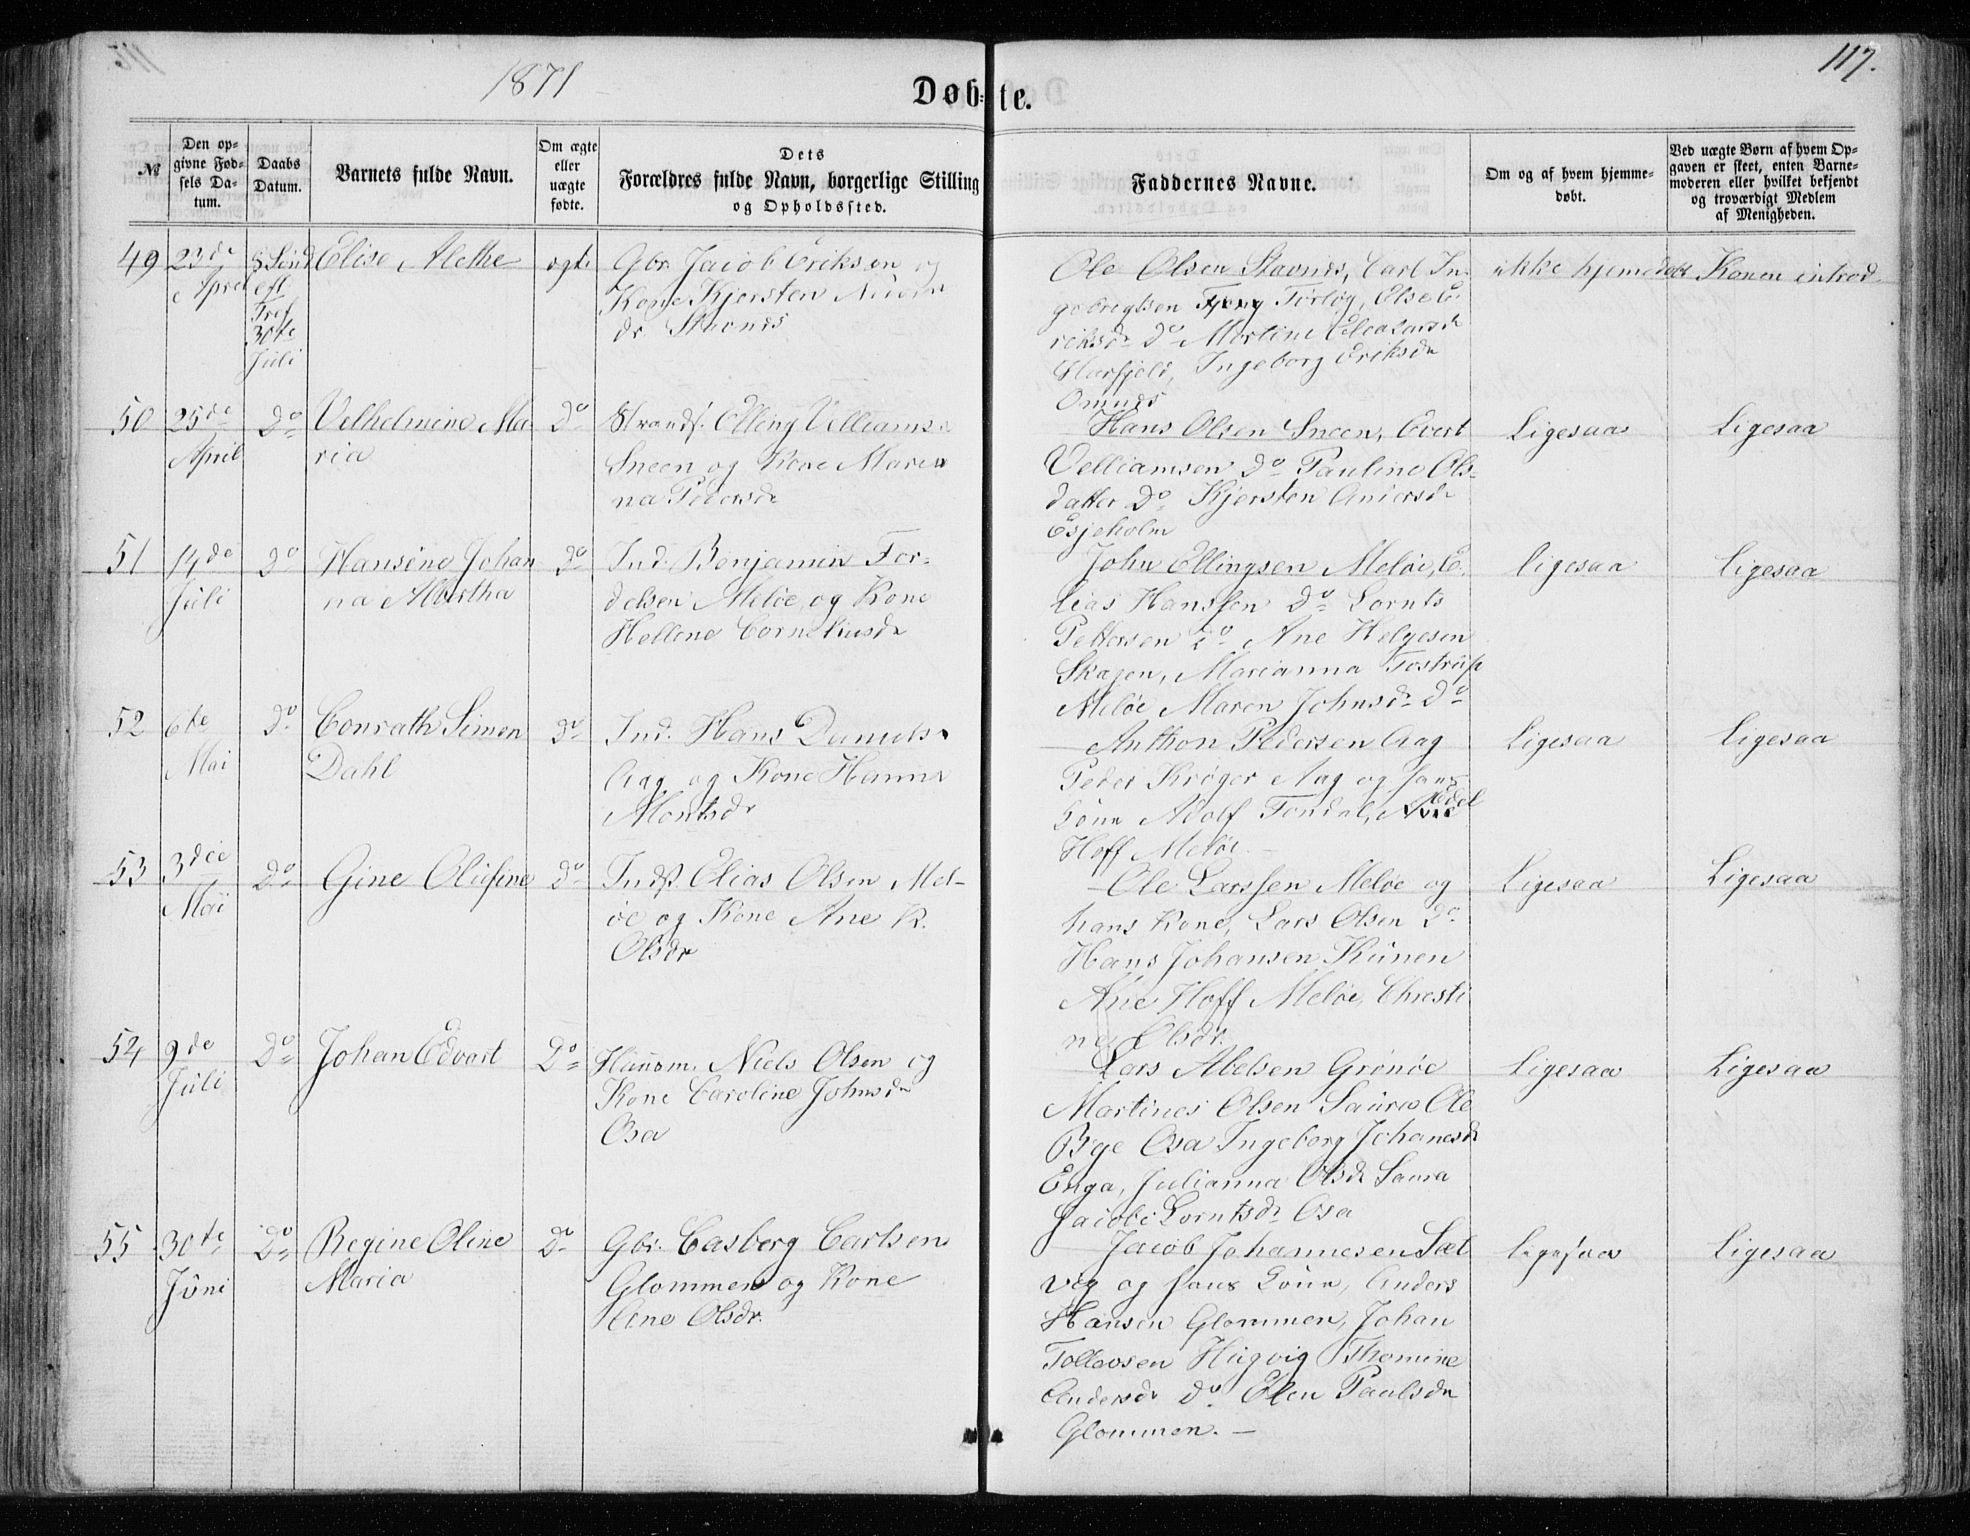 1871
117.
Døb-te.
№
Den op-
givne Fød-
sels Da-
tum.
Daabs
Datum.
Barnets fulde Navn.
Om ægte
eller
uægte
fødte.
Dets
Forældres fulde Navn, borgerlige Stilling
og Opholdssted.
Faddernes Navne.
Om og af hvem hjemme-
døbt.
Ved uægte Børn af hvem Op-
gaven er skeet, enten Barne-
moderen eller hvilket bekjendt
og troværdigt Medlem
af Menigheden.
49
23de
April
8 Sønd
eft
Tref
30te
Juli
Elise Alethe
ægte
Gbr. Jacob Eriksen og
Kone Kjersten
dr. Stavnes
Ole Olsen Stavnes, Carl In-
gebregtsen Fjong Torlög, Else E-
riksdr Do Martine Eleasarsdr
Harfjeld, Ingeborg Eriksdr
Omnes
ikke hjemedøbt
Konen introd.
50
25de
April
Do
Velhelmine Ma
ria
Do
Strands. Elling Velliams.
Sneen og Kone Maren
na Pedersdr
Hans Olsen Sneen, Evert
Velliamsen Do Pauline Ols-
datter Do Kjersten Andersdr
Esjeholm
Ligesaa
Ligesaa
51
14de
Juli
Do
Hansine Johan
na Martha
Do
Ind. Benjamin Tor-
delsen Meløe og Kone
Hellene Corneliusdr
John Ellingsen Meløe, E-
lias Hanssen Do Lornts
Pettersen Do Ane Helgesen
Skagen, Marianna Tostrup
Meløe Maren Johnsdr Do
ligesaa
Ligesaa
52
6te
Mai
Do
Conrath Simon
Dahl
Do
Ind. Hans Daniels.
Aag og Kone Hanna
Montsdr
Anthon Pedersen Aag
Peder Krøger Aag og hans
Sønn Adolf Tondal,
Hoff Meløe.
Ligesaa
Ligesaa
53
3die
Mai
Do
Gine Olufine
Do
Inds. Elias Olsen Mel-
øe og Kone Ane K.
Olsdr
Ole Larssen Meløe og
hans Kone, Lars Olsen Do
Hans Johansen Kunen
Ane Hoff Meløe, Christi
ne Olsdr.
Ligesaa
Ligesaa
54
9de
Juli
Do
Johan Edvart
Do
Huusm. Niels Olsen og
Kone Caroline Johnsdr
Osa
Lars Abelsen Grønøe
Martines Olsen Saura Ole
Bye Osa Ingeborg Johanesdr
Enga, Julianna Olsdr Saura
Jacobe Lorntsdr Osa
Ligesaa
Ligesaa
55
30te
Juni
Do
Regine Oline
Maria
Do
Gbr. Casberg Carlsen
Glommen og Kone
Ane Olsdr.
Jacob Johannesen Sæt
vig og hans Søun, Anders
Hansen Glommen, Johan
Tollevsen Hugvig Thomine
Andersdr Do. Elen Paulsdr
Glommen.
Ligesaa
Ligesaa